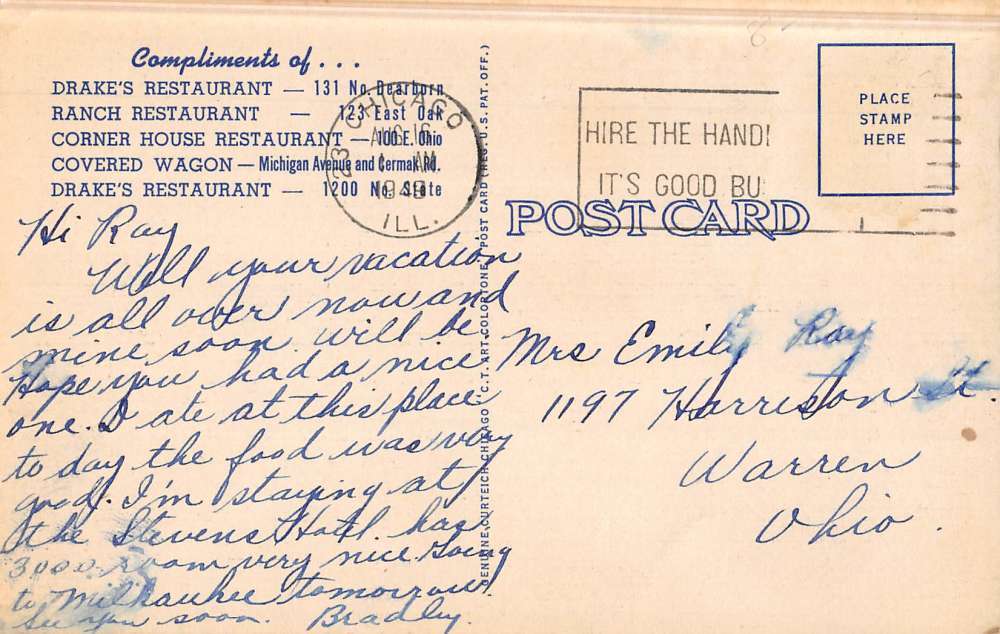 Compliments of . . .
DRAKE'S RESTAURANT — 131 No. Dearborn
RANCH RESTAURANT — 123 East Oak
CORNER HOUSE RESTAURANT — 100 E. Ohio
COVERED WAGON — Michigan Avenue and Cermak Rd.
DRAKE'S RESTAURANT — 1200 No. State
CHICAGO
23
AUG 16
AM
ILL.
HIRE THE HANDI
IT'S GOOD BU
PLACE
STAMP
HERE
POST CARD
GENUINE CURTEICH-CHICAGO "C.T. ART-COLORTONE" POST CARD (REG. U.S. PAT. OFF.)
Hi Ray
Well your vacation
is all over now and
mine soon will be
Hope you had a nice
one. I ate at this place
to day the food was very
good. I'm staying at
the Stevens Hotel. has
3000 room very nice. Going
to Milwaukee tomorrow.
See you soon. Bradley.
Mrs Emily Ray
1197 Harrison St.
Warren
Ohio.